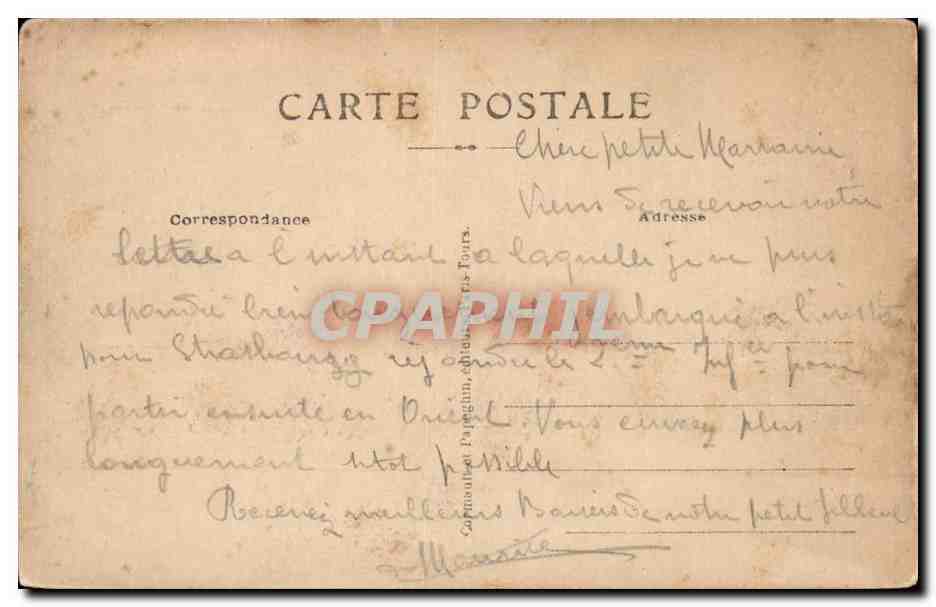 CARTE POSTALE
Chère petite Marraine
Viens de recevoir votre
Correspondance
Adresse
lettre a l'instant a laquelle je ne puis
repondre bien embarqué a l'inst
CPAPHIL
pour Strasbourg rejoindre le 2eme Infie pour
partir ensuite en Orient. Vous envoy plus
longuement sitot possible
Recevez meilleurs Baisers de votre petit filleul
Maurice
Cormault et Papeghin, éditeurs, Paris-Tours.